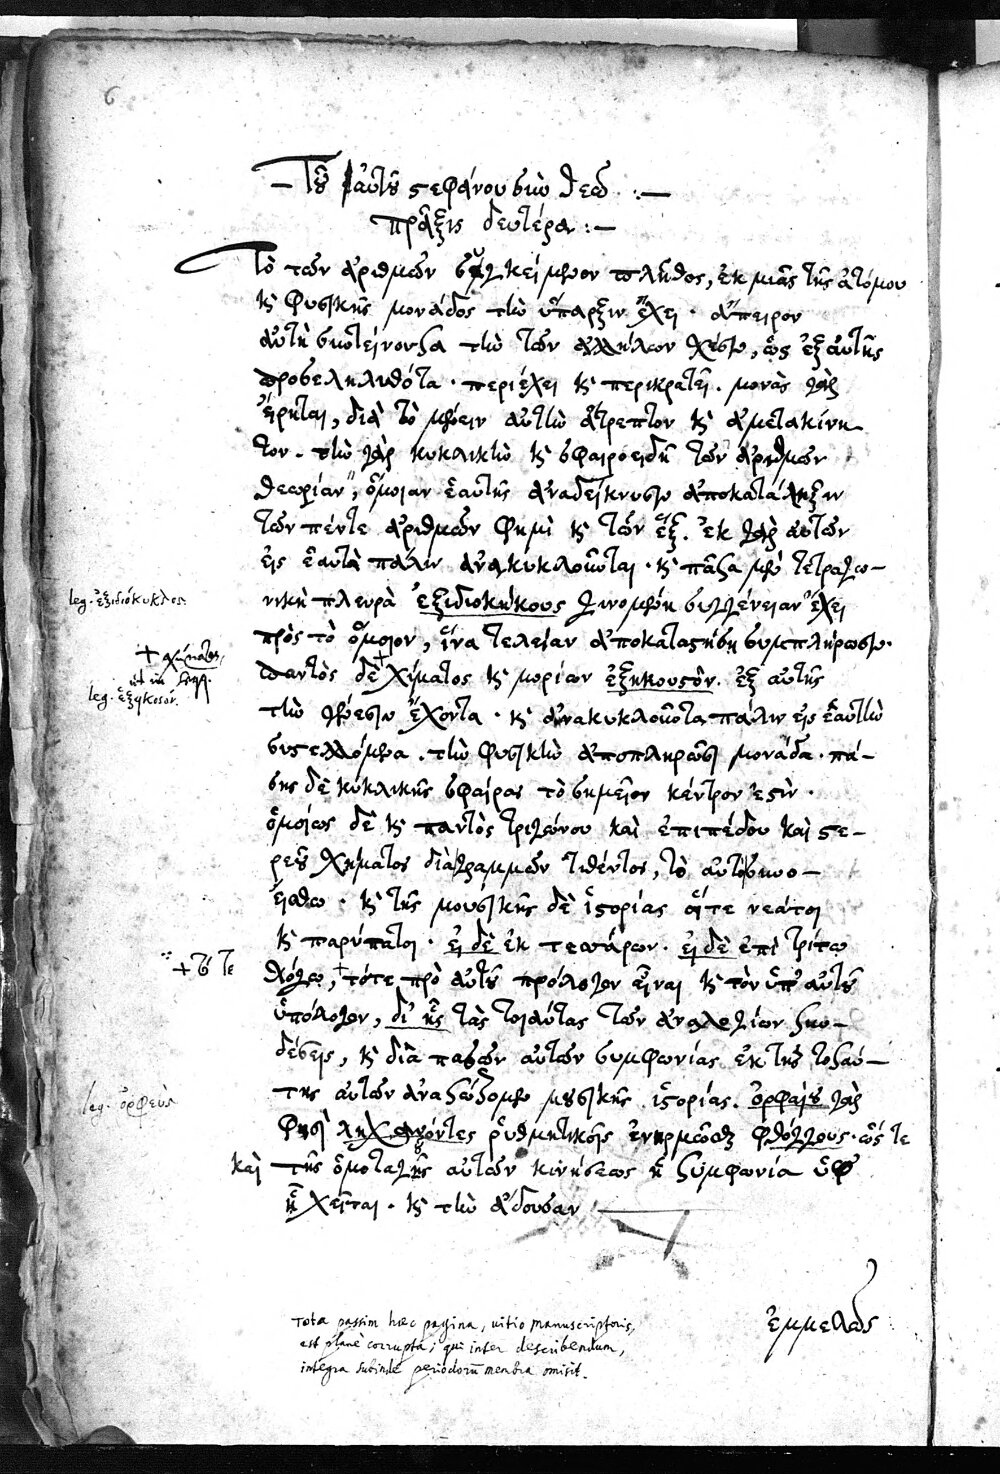 6
Τοῦ αὐτοῦ στεφάνου σὺν θεῶ :—
πρᾶξις δευτέρα :—
Τὸ τῶν ἀριθμῶν συγκείμενον πλῆθος, ἐκ μιᾶς τῆς ἀτόμου
καὶ φυσικῆς μονάδος τὴν ὕπαρξιν ἔχει · ἄπειρον
αὐτὴ τὴν τῶν ἀλλήλων χύσιν, ὡς ἐξ αὐτῆς
προβεληλυθότα · περιέχει καὶ περικρατεῖ · μονὰς γὰρ
εἴρηται, διὰ τὸ μένειν αὐτὴν ἄτρεπτον καὶ ἀμετακίνη
τον · τὴν γὰρ κυκλικὴν καὶ σφαιροειδῆ τῶν ἀριθμῶν
θεωρίαν, ὅμοιαν ἑαυτῆς ἀναδείκνυσιν ἀποκατάληξιν
τῶν πέντε ἀριθμῶν φημὶ καὶ τῶν ἕξ. ἐκ γὰρ αὐτῶν
εἰς ἑαυτὰ πάλιν ἀνακυκλοῦται · καὶ πᾶσα μὲν τετραγω—
νικὴ πλευρὰ ἐξιδιοκήκους γινομένη συγγένειαν ἔχει
leg. ἐξιδιόκυκλος.
πρὸς τὸ ὅμοιον, ἵνα τελείαν ἀποκατάστησιν συμπληρώσιν.
παντὸς δὲ χίματος καὶ μορίων ἐξηκουσὸν. ἐξ αὐτῆς
+ χήματος,
leg. ἑξηκοστόν.
τὴν γένεσιν ἔχοντα · καὶ ἀνακυκλοῦντα πάλιν εἰς ἑαυτὴν
συστελλόμενα · τὴν φυσικὴν ἀποπληρῶσι μονάδα · πά—
σης δὲ κυκλικῆς σφαίρας τὸ σημεῖον κέντρον ἐστὶν ·
ὁμοίως δὲ καὶ παντὸς τριγώνου καὶ ἐπιπέδου καὶ στε—
ρεοῦ χήματος διαγραμμῶν τιθέντος, τὸ αὐτὸ
καὶ τῆς μουσικῆς δὲ ἱστορίας αἵτε νεάτοι
καὶ παρύπατοι · εἰ δὲ ἐκ τεσσάρων · εἰ δὲ ἐπὶ τρίτῳ
λόγῳ, + τότε πρὸ αὐτοῦ πρόλογον εἶναι καὶ τὸν ὑπ' αὐτοῦ
+ τό τε
ὑπόλογον, δι' ἧς τὰς τοιαύτας τῶν ἀναλογιῶν συν—
δέσεις, καὶ διὰ πασῶν αὐτῶν συμφωνίας ἐκ τῆς τοσαύ—
της αὐτῶν μουσικῆς ἱστορίας. ὀρφαίου γὰρ
leg. ὀρφεὺς
φησὶ ῥυθμητικοῖς φθόγγους · ὥστε
καὶ τῆς ὁμοταγῆς αὐτῶν κινήσεως ἡ συμφωνία ὑφ
ἠχεῖται · καὶ τὴν ἄδουσαν
ἐμμελῶς
Tota passim hæc pagina, vitio manuscriptoris,
est planè corrupta; qui inter describendum,
integra subinde periodorũ membra omisit.